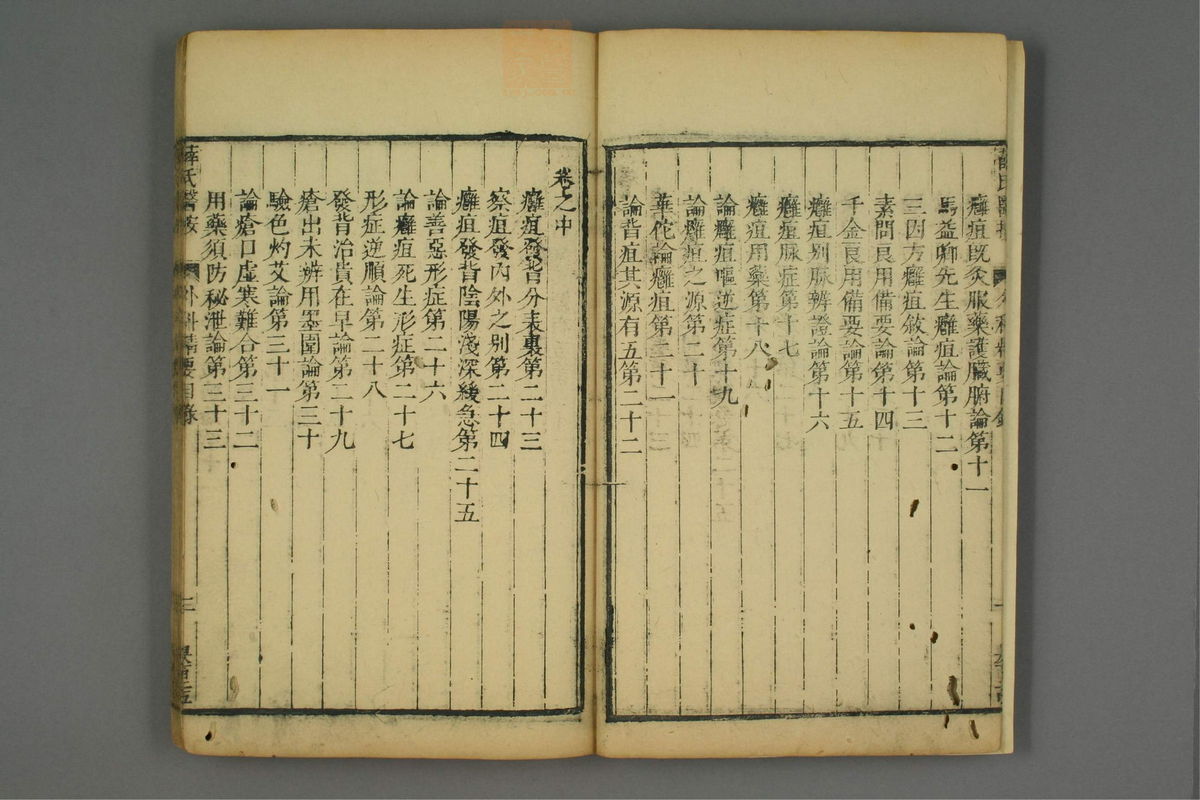 癰疽既灸服藥護臟腑論第十一
馬益卿先生癰疽論第十二
三因方癰疽敘論第十三
素問良用備要論第十四
千金良用備要論第十五
癰疽別脉辨證論第十六
癰疽脉症第十七
癰疽用藥第十八
論癰疽嘔逆症第十九
論癰疽之源第二十
華佗論癰疽第二十一
論背疽其源有五第二十二
卷之中
癰疽發背分表裏第二十三
察疽發內外之別第二十四
癰疽發背陰陽淺深緩急第二十五
論善惡形症第二十六
論癰疽死生形症第二十七
形症逆順論第二十八
發背治貴在早論第二十九
瘡出未辨用墨圍論第三十
驗色灼艾論第三十一
論瘡口虛寒難合第三十二
用藥須防秘泄論第三十三
薛氏醫按 外科精要目錄 三